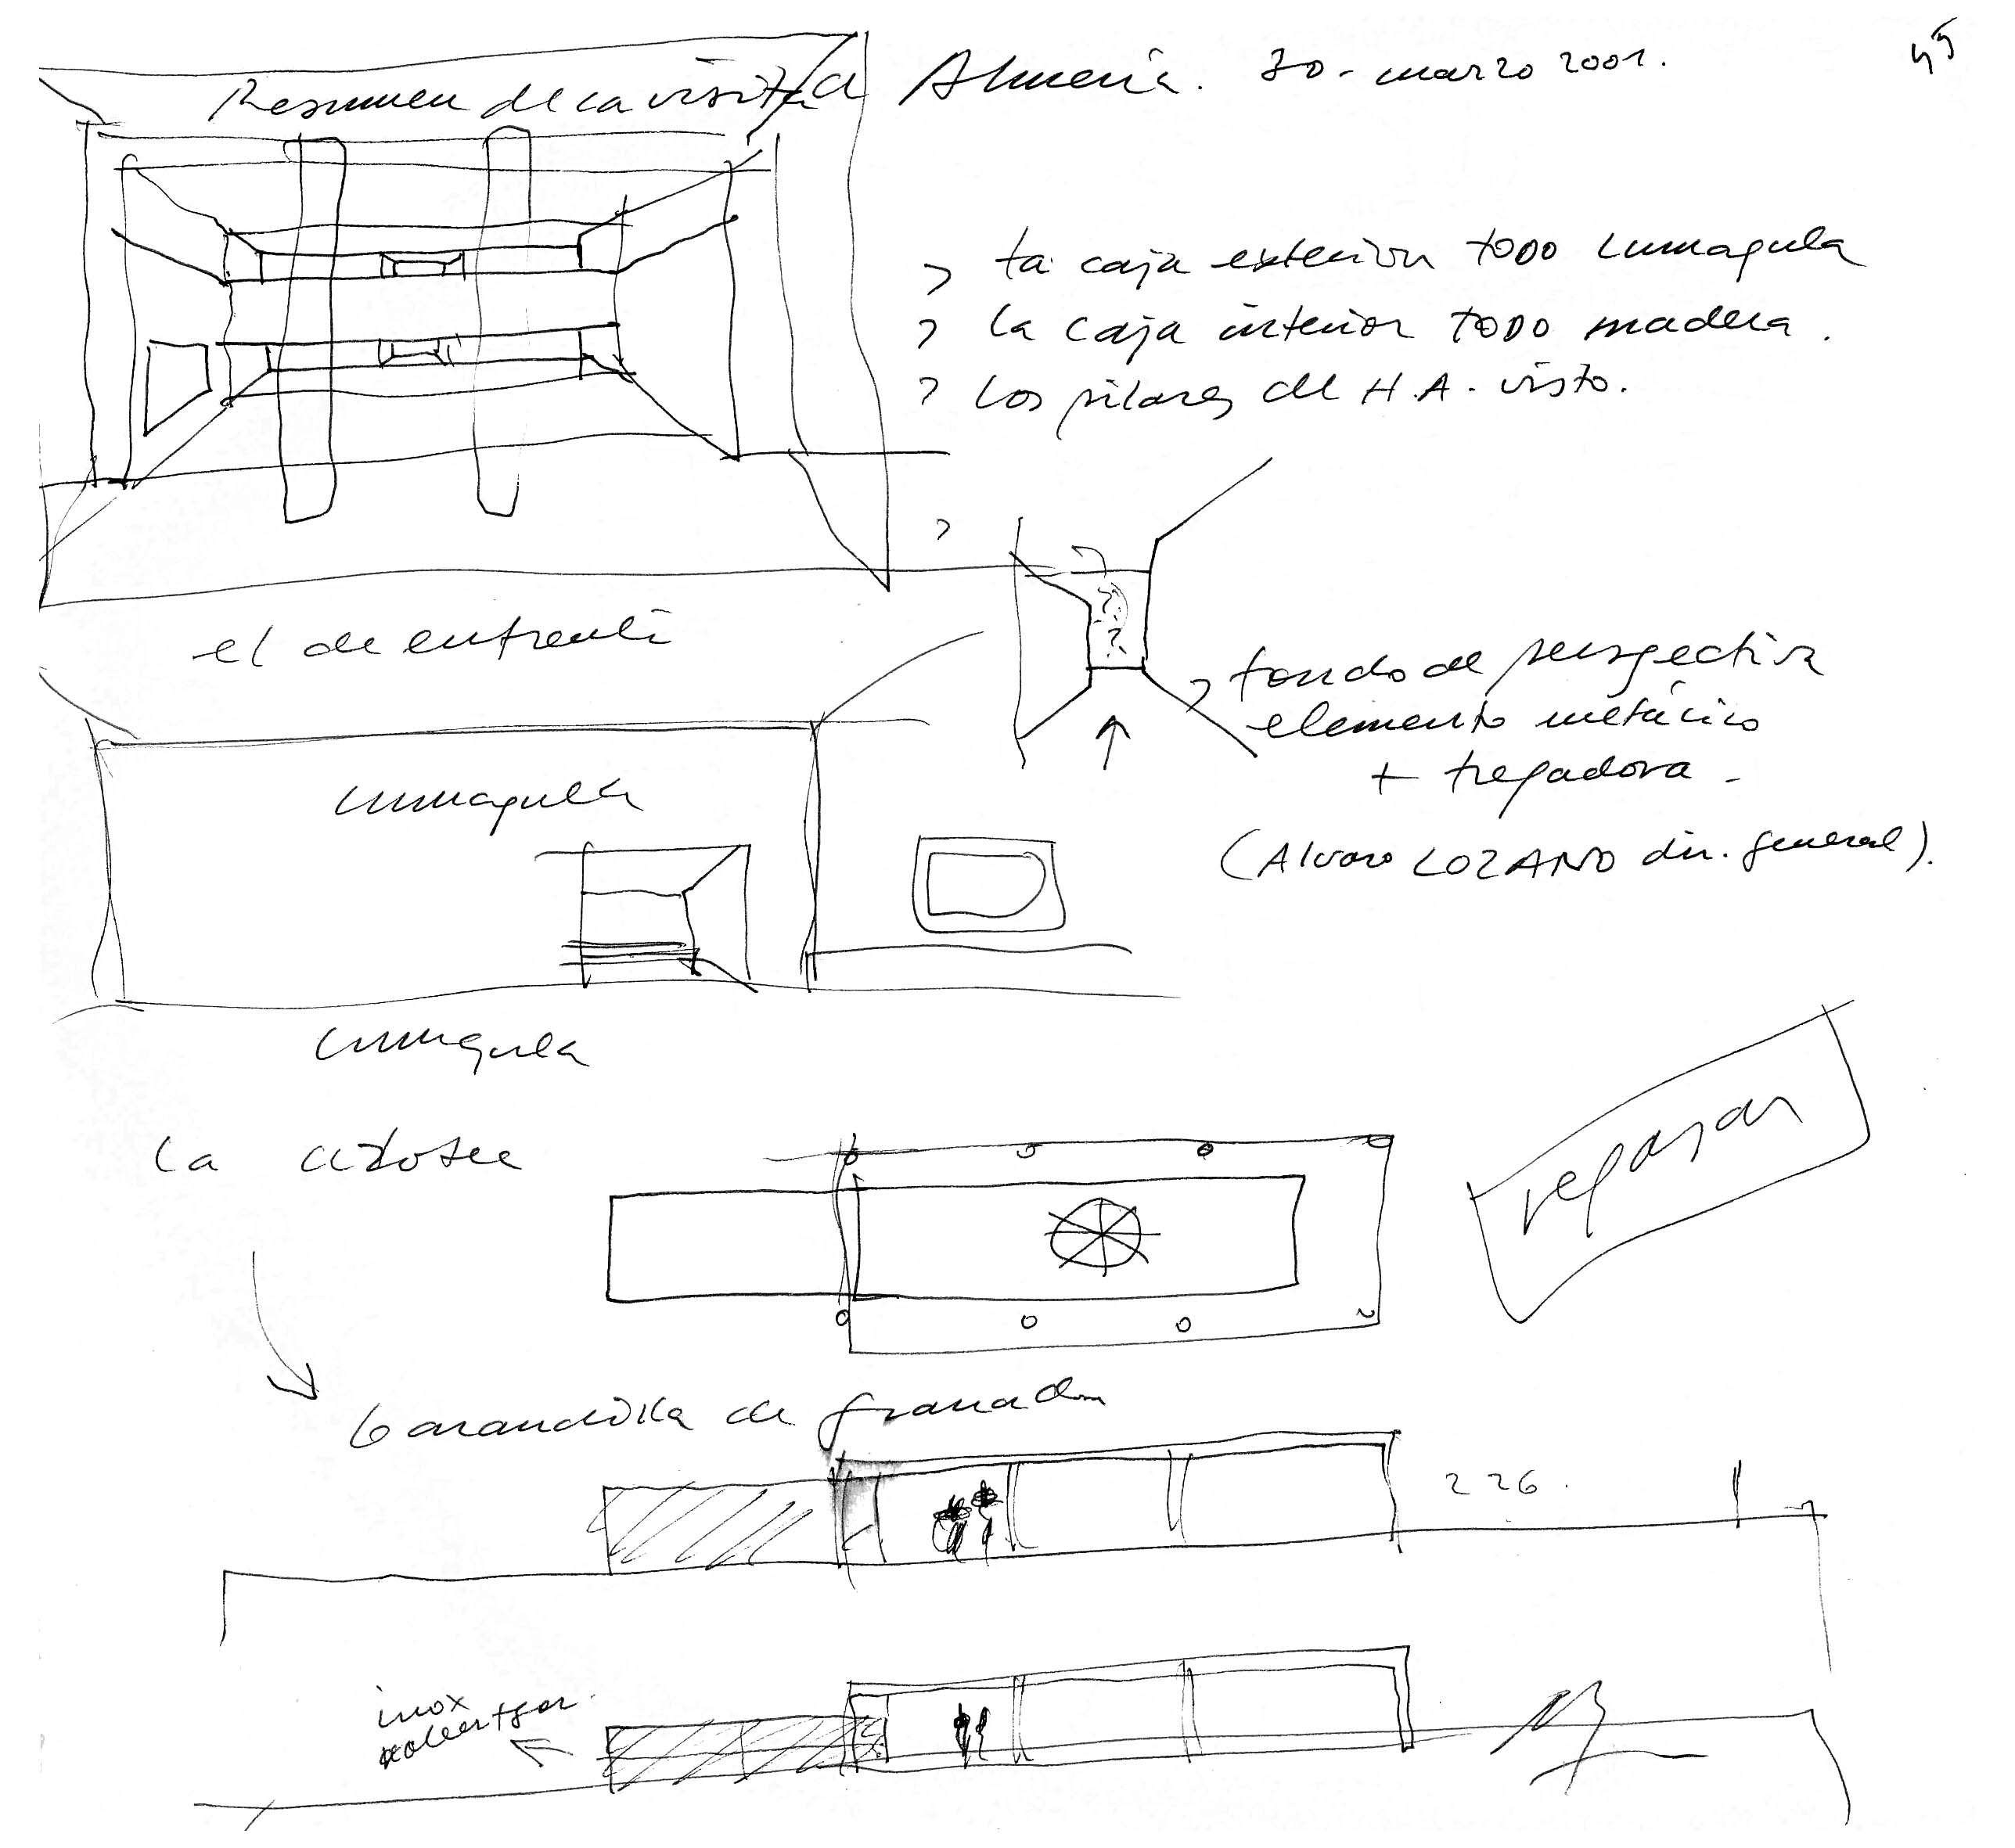 Resumen de la visita a Almería. 30 - marzo 2001.
45
> la caja exterior TODO Lumaquela
> la caja interior TODO madera.
> los pilares de H.A. visto.
>
el de enfrente
> fondo de perspectiva
elemento metálico
+ fregadora -
(Alvaro LOZANO dir. general).
Lumaquela
Lumaquela
repasar
la azotea
barandilla de granada
226.
inox